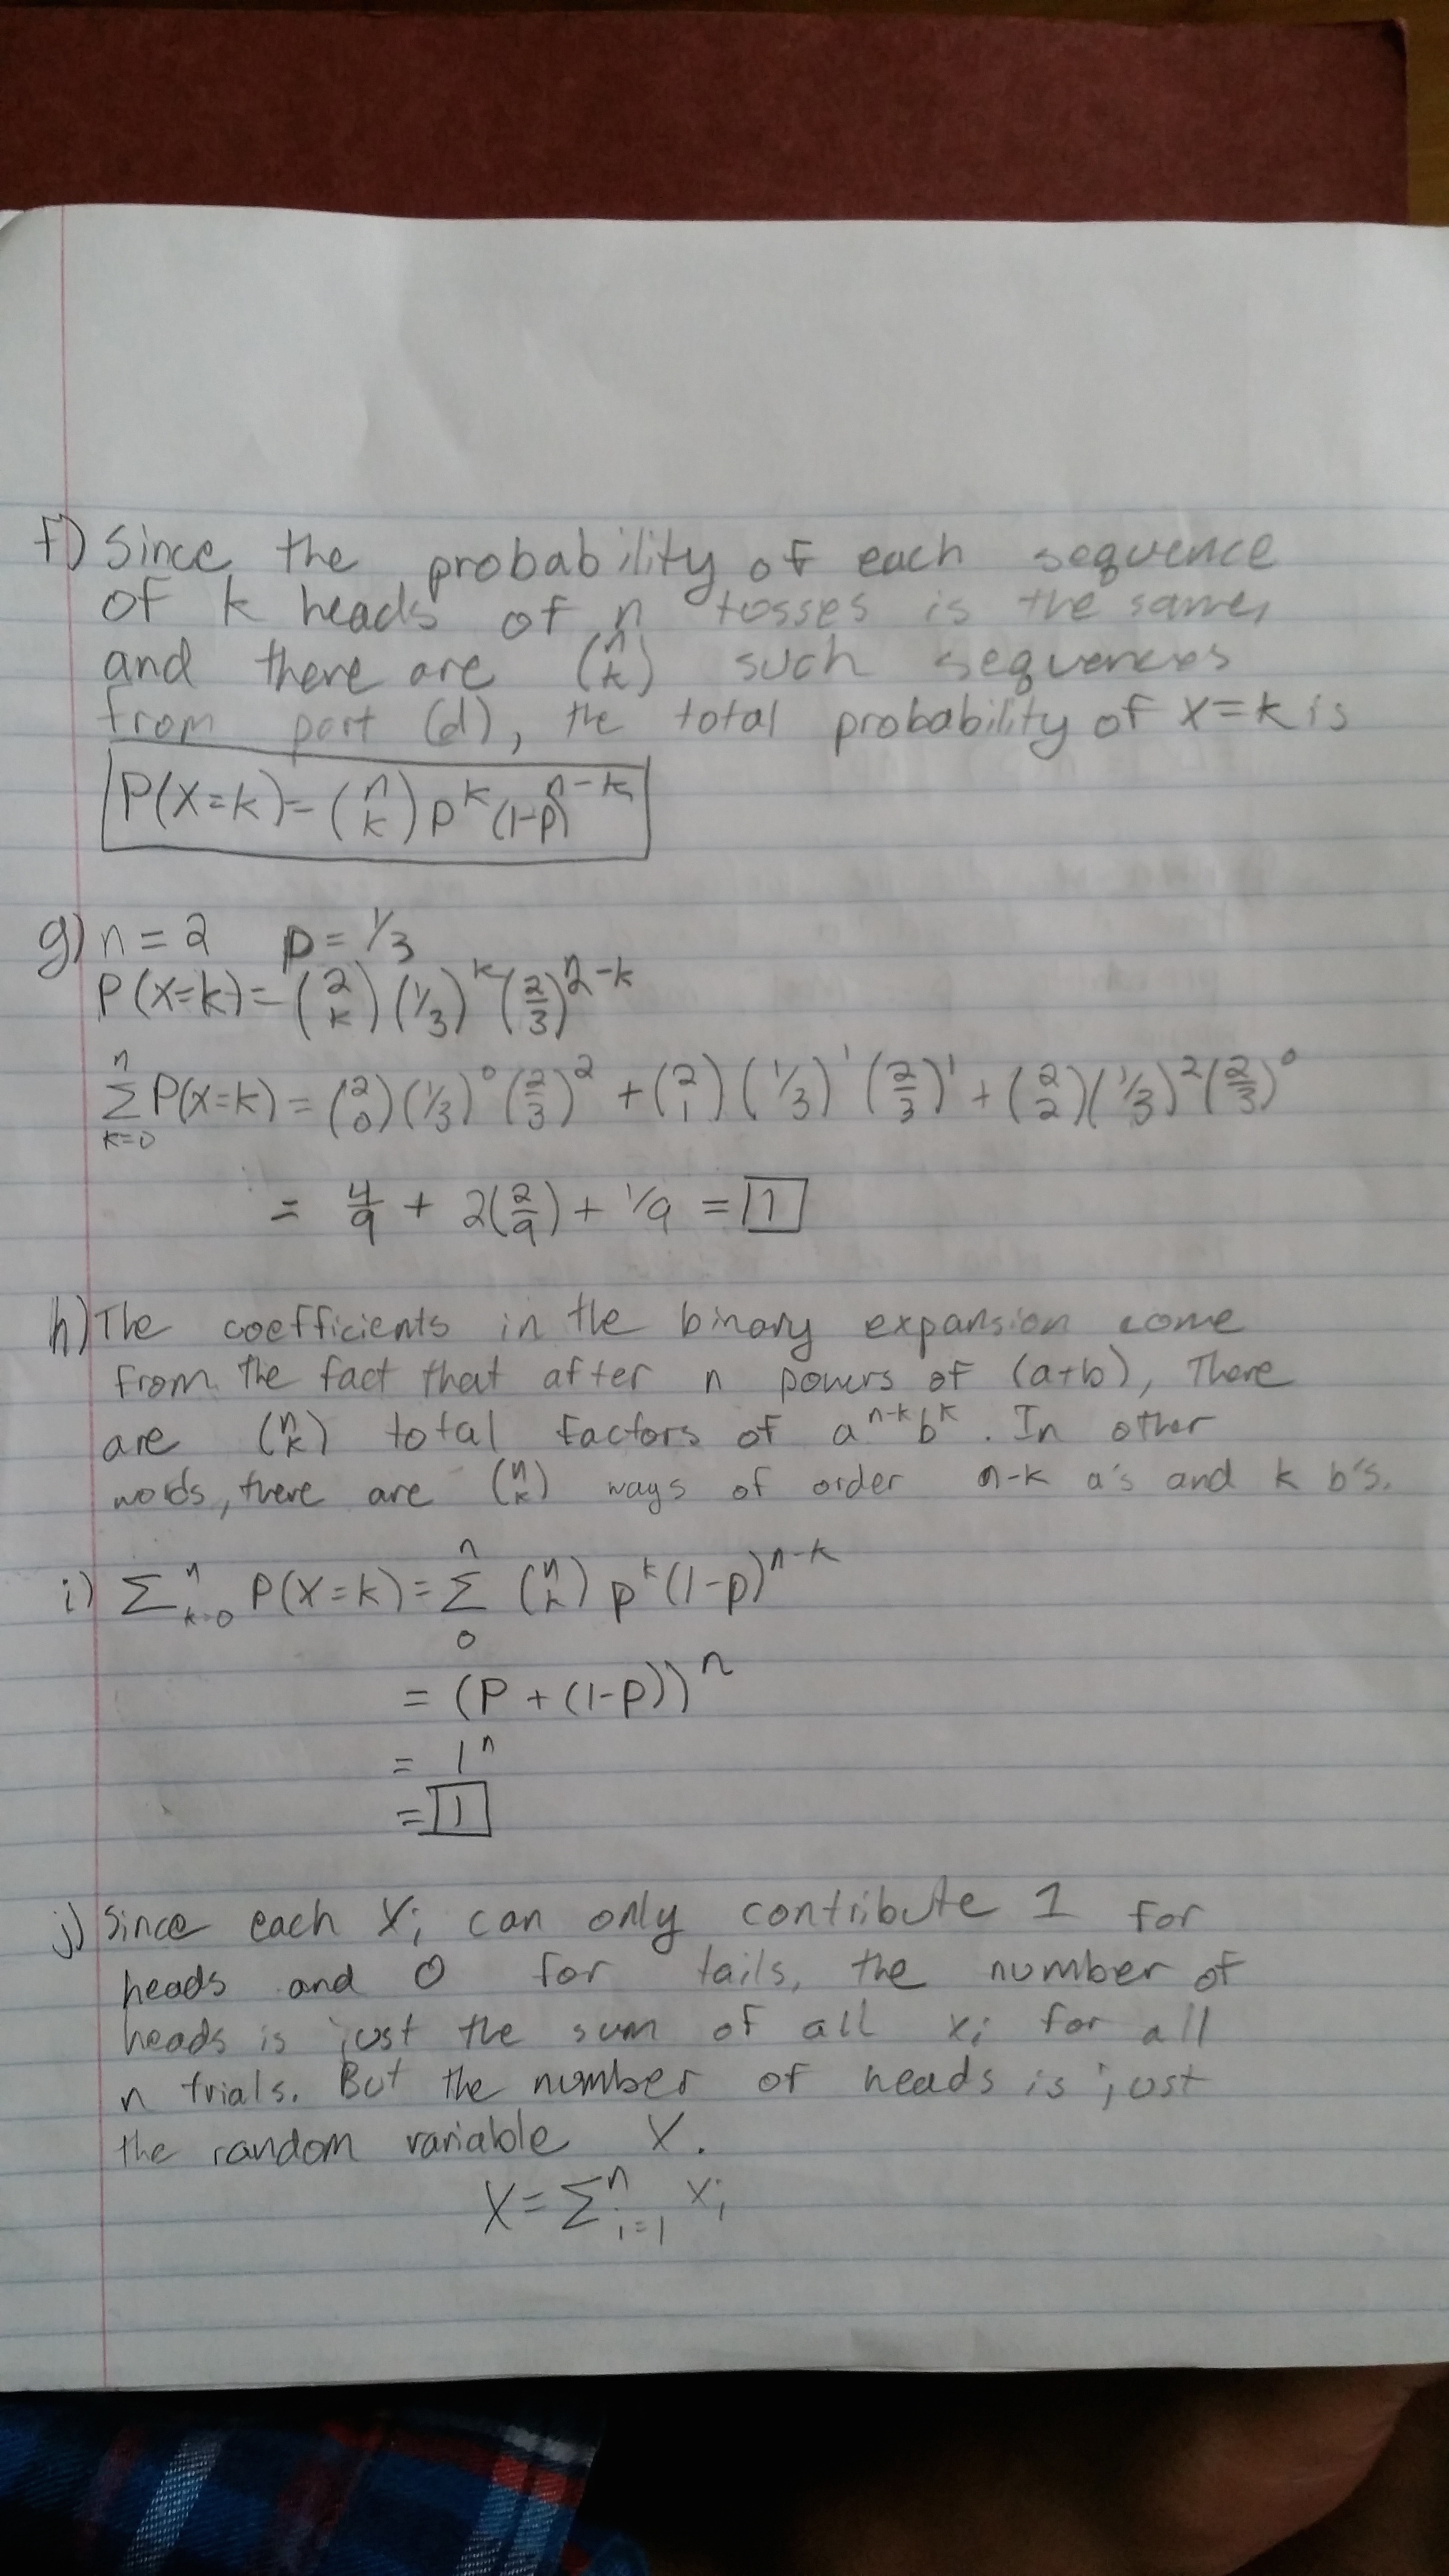 f) Since the probability of each sequence
of k heads of n tosses is the same,
and there are (n k) such sequences
from part (d), the total probability of x=k is
P(X=k)=(n k) p^k (1-p)^n-k
g) n=2 p=1/3
P(X=k)=(2 k)(1/3)^k(2/3)^2-k
∑_{k=0}^n P(X=k) = (2 0)(1/3)^0(2/3)^2 + (2 1)(1/3)^1(2/3)^1 + (2 2)(1/3)^2(2/3)^0
= 4/9 + 2(2/9) + 1/9 = 1
h) The coefficients in the binary expansion come
from the fact that after n powers of (a+b), There
are (n k) total factors of a^n-k b^k. In other
words, there are (n k) ways of order n-k a's and k b's.
i) ∑_{k=0}^n P(X=k) = ∑_0^n (n k) p^k (1-p)^n-k
= (p+(1-p))^n
= 1^n
= 1
j) Since each X_i can only contribute 1 for
heads and 0 for tails, the number of
heads is just the sum of all x_i for all
n trials. But the number of heads is just
the random variable X.
X=∑_{i=1}^n x_i